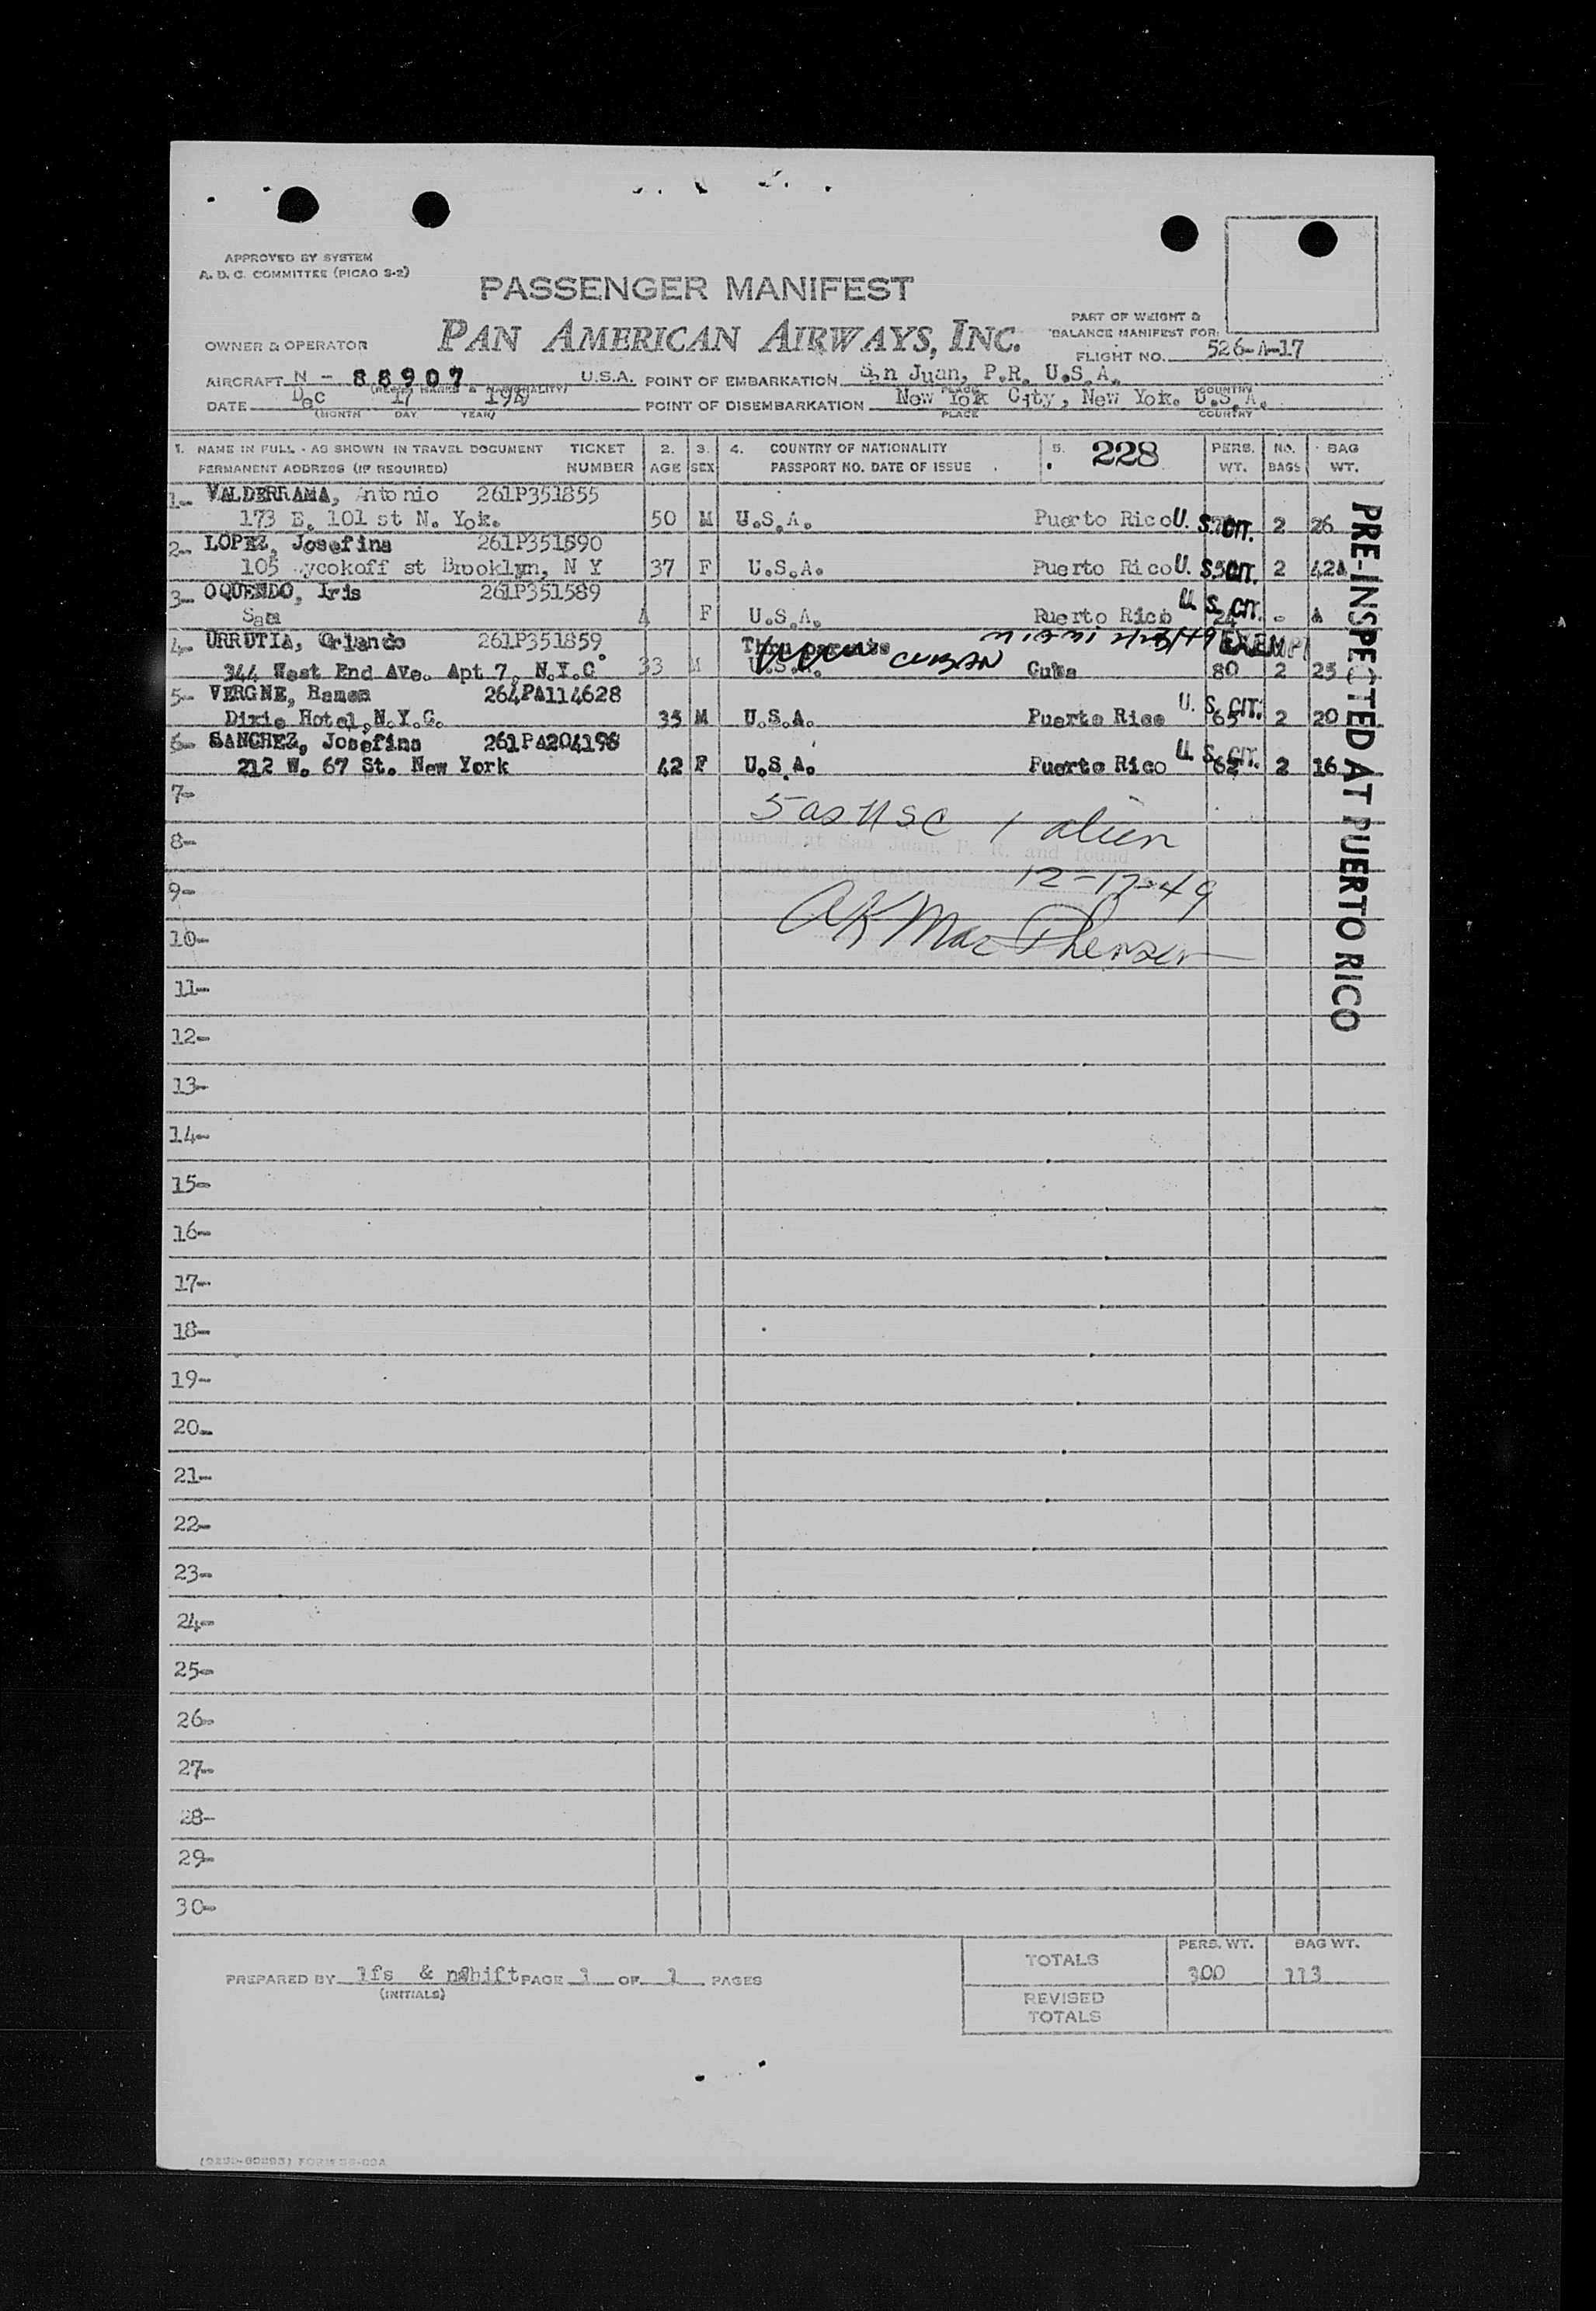 APPROVED BY SYSTEM
A. D. C. COMMITTEE (PICAO S-2)
PASSENGER MANIFEST
PART OF WEIGHT &
BALANCE MANIFEST FOR:
OWNER & OPERATOR PAN AMERICAN AIRWAYS, INC.
FLIGHT NO. 526-A-17
AIRCRAFT N - 88907 U.S.A. POINT OF EMBARKATION San Juan, P.R. U.S.A.
DATE Dec 17 19 POINT OF DISEMBARKATION New Yok City, New Yok. U.S.A.
(MONTH DAY YEAR) PLACE COUNTRY
1. NAME IN FULL - AS SHOWN IN TRAVEL DOCUMENT TICKET 2. 3. 4. COUNTRY OF NATIONALITY 5. 228 PERS. NO. BAG
PERMANENT ADDRESS (IF REQUIRED) NUMBER AGE SEX PASSPORT NO. DATE OF ISSUE WT. BAGS WT.
1- VALDERRAMA, Antonio 261P351855
173 E. 101 st N. Yok. 50 M U.S.A. Puerto Rico U. S. CIT. 2 26
2- LOPEZ, Josefina 261P351590
105 ycokoff st Brooklyn, N Y 37 F U.S.A. Puerto Rico U. S. CIT. 2 42
3- OQUENDO, Iris 261P351589
Sam 4 F U.S.A. Puerto Rico U. S. CIT. 24 -
4- URRUTIA, Orlando 261P351859 Thru parents Miami EXEMPT
344 West End Ave. Apt 7, N.Y.C 33 M U.S.A. CUBAN Cuba 80 2 25
5- VERGNE, Ramon 264PA114628
Dixie Hotel, N.Y.C. 35 M U.S.A. Puerto Rico U. S. CIT. 65 2 20
6- SANCHEZ, Josefina 261PA204196
212 W. 67 St. New York 42 F U.S.A. Puerto Rico U. S. CIT. 62 2 16
PRE-INSPECTED AT PUERTO RICO
7-
5 as USC 1 alien
8-
Examined at San Juan, P. R. and found
12-17-49
9-
AK MacPherson
10-
11-
12-
13-
14-
15-
16-
17-
18-
19-
20-
21-
22-
23-
24-
25-
26-
27-
28-
29-
30-
TOTALS PERS. WT. BAG WT.
300 113
PREPARED BY lfs & PAGE 1 OF 1 PAGES
(INITIALS)
REVISED
TOTALS